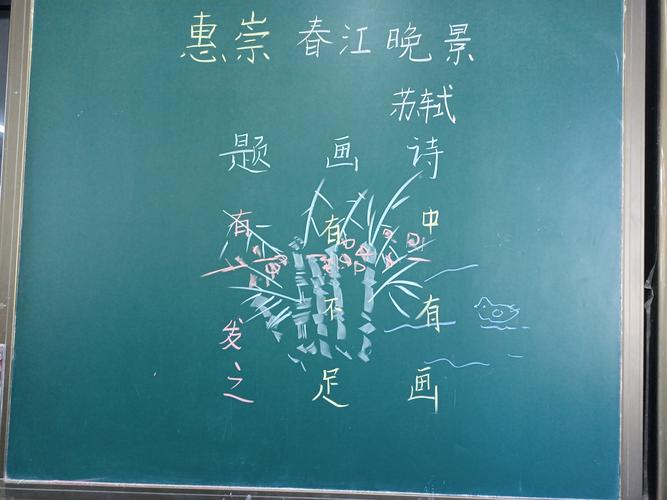 惠崇 春江晚景
苏轼
诗中有画
画有不足
题有发之